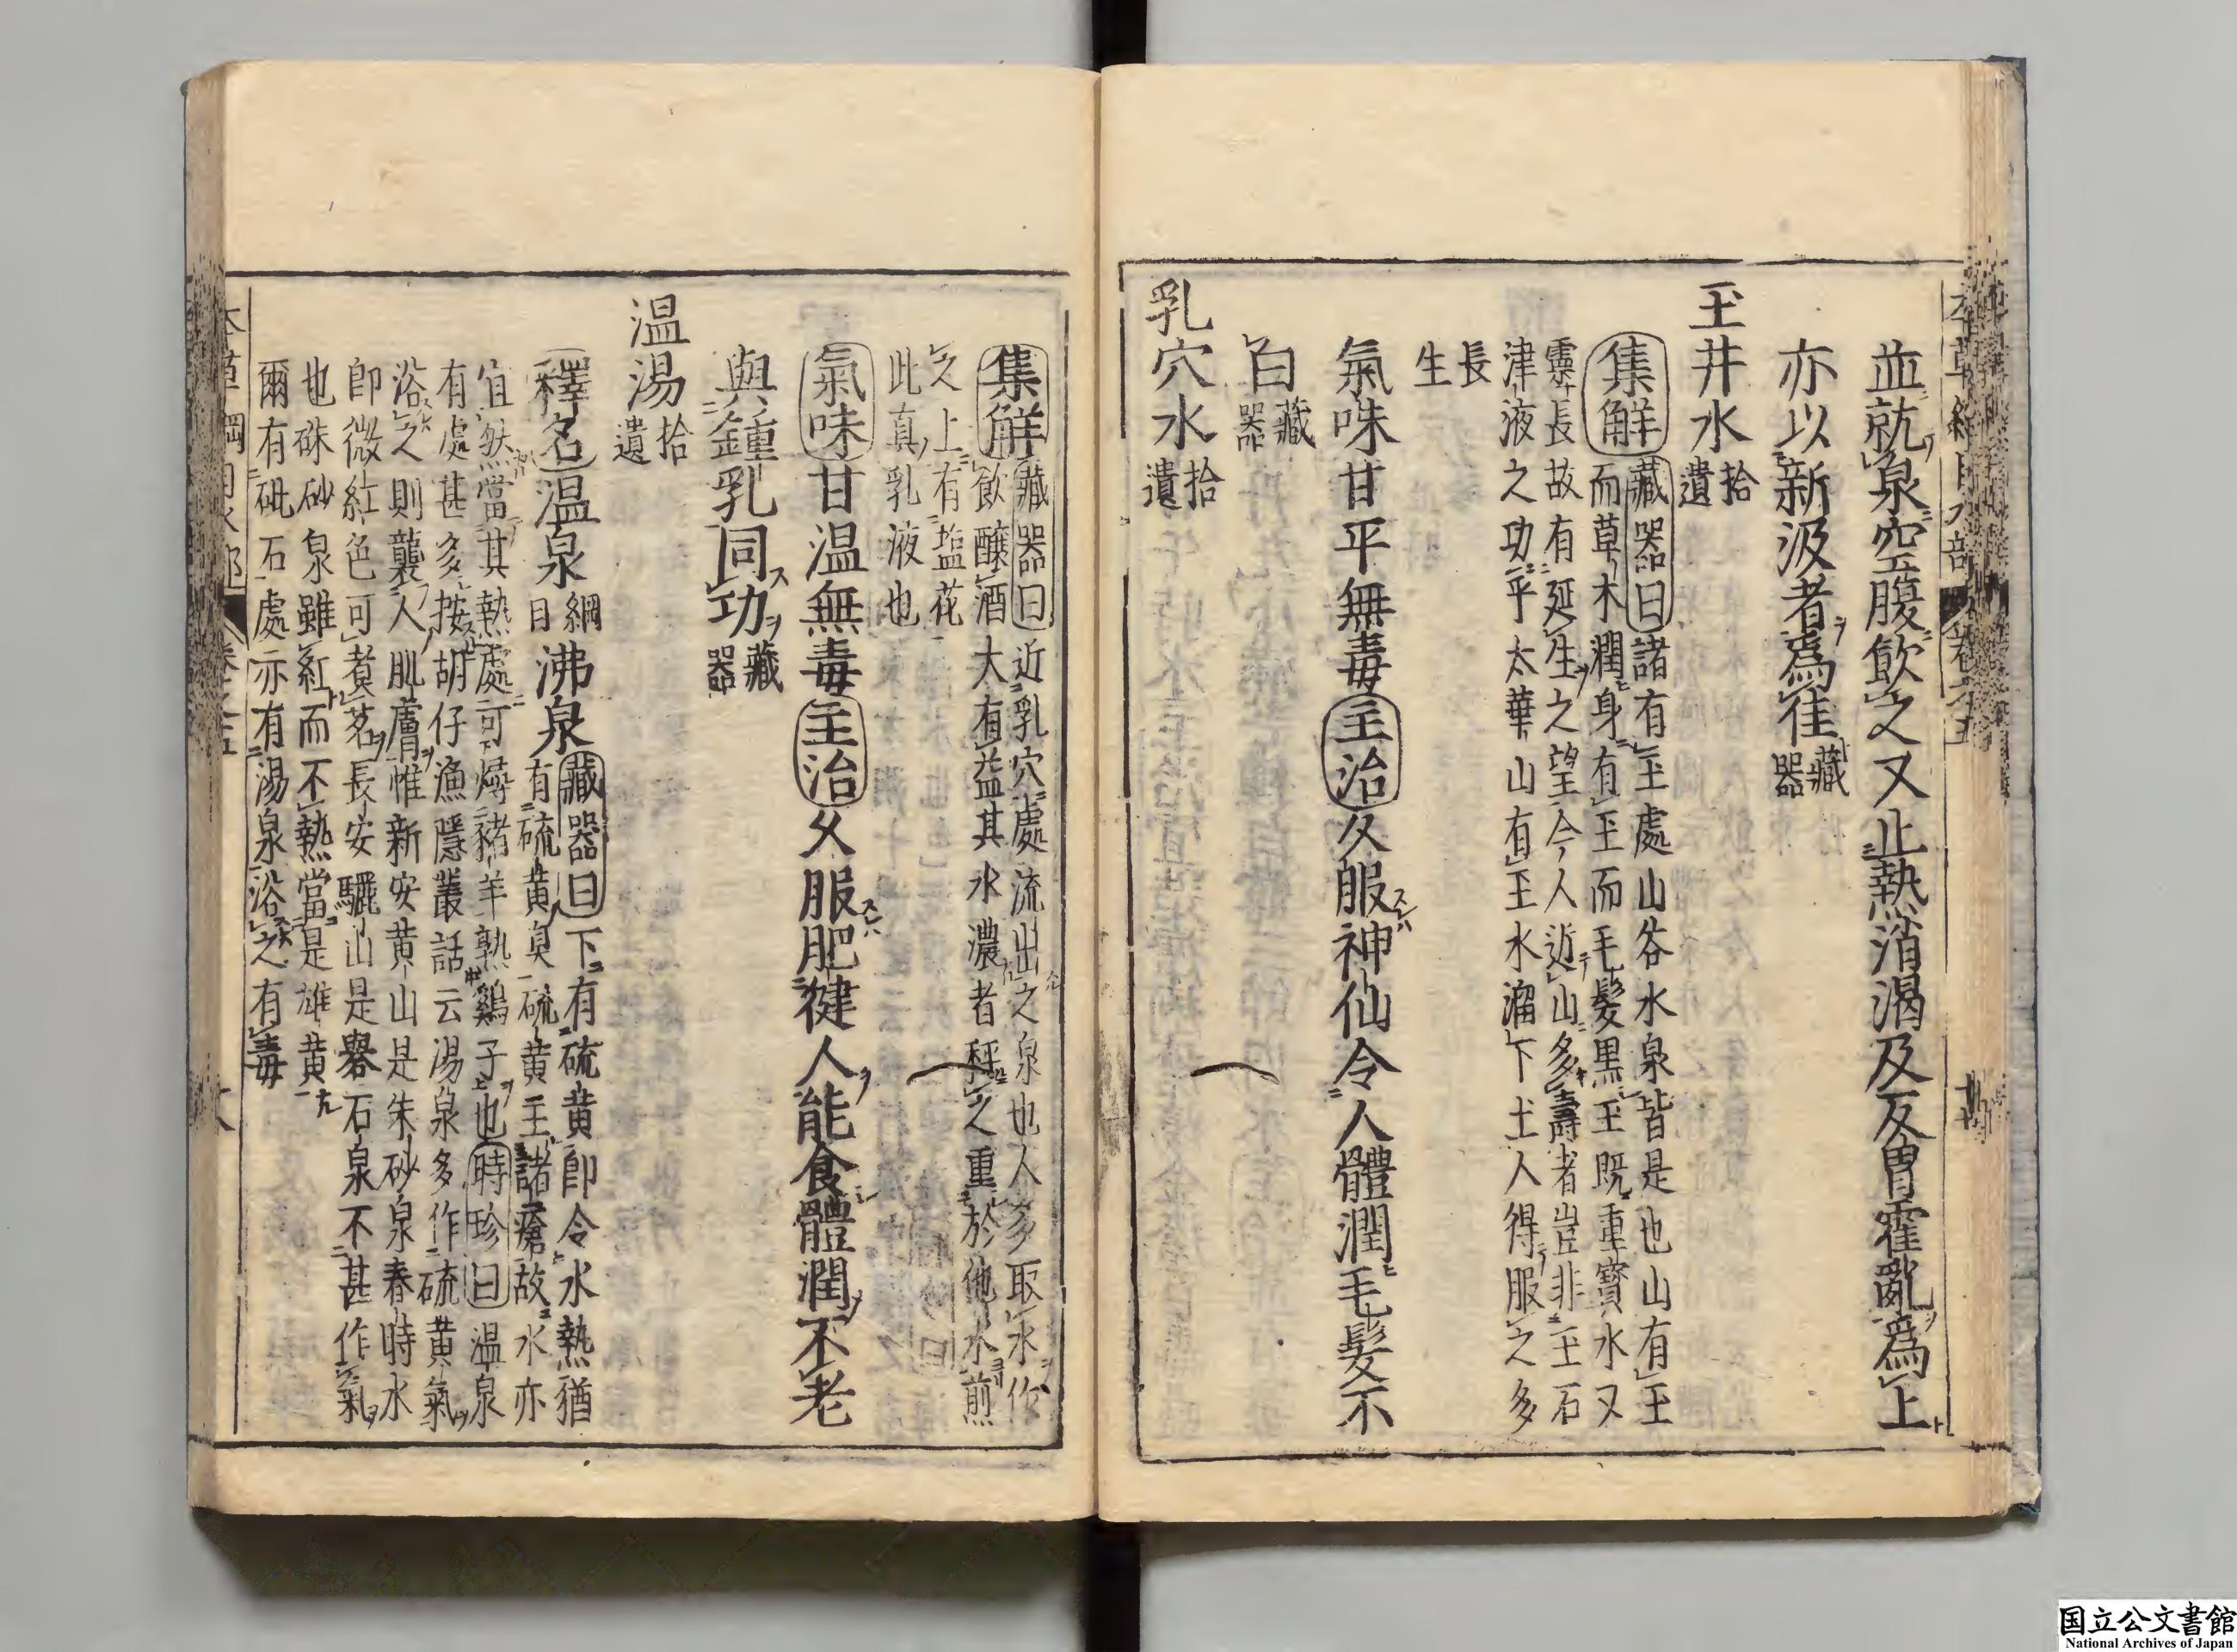 並就泉空腹飲之又止熱消渴及反胃霍亂爲上
亦以新汲者爲佳藏器
玉井水拾遺
集解藏器曰諸有玉處山谷水泉皆是也山有玉
而草木潤身有玉而毛髮黑玉既重寳水又
靈長故有延生之望今人近山多壽者豈非玉石
津液之功乎太華山有玉水溜下土人得服之多
長生
氣味甘平無毒主治久服神仙令人體潤毛髮不
白藏器
乳穴水拾遺
集解藏器曰近乳穴處流出之泉也人多取水作
飲釀酒大有益其水濃者秤之重於他水煎
之上有塩花
此真乳液也
氣味甘温無毒主治久服肥健人能食體潤不老
與鍾乳同功藏器
温湯拾遺
釋名温泉綱目沸泉藏器曰下有硫黄卽令水熱猶
有硫黄臭硫黄主諸瘡故水亦
宜然當其熱處可燖豬羊熟鷄子也時珍曰温泉
有處甚多按胡仔漁隱叢話云湯泉多作硫黄氣
浴之則襲人肌膚惟新安黄山是朱砂泉春時水
卽微紅色可煑茗長安驪山是礜石泉不甚作氣
也硃砂泉雖紅而不熱當是雄黄尤
爾有砒石處亦有湯泉浴之有毒
国立公文書館
National Archives of Japan